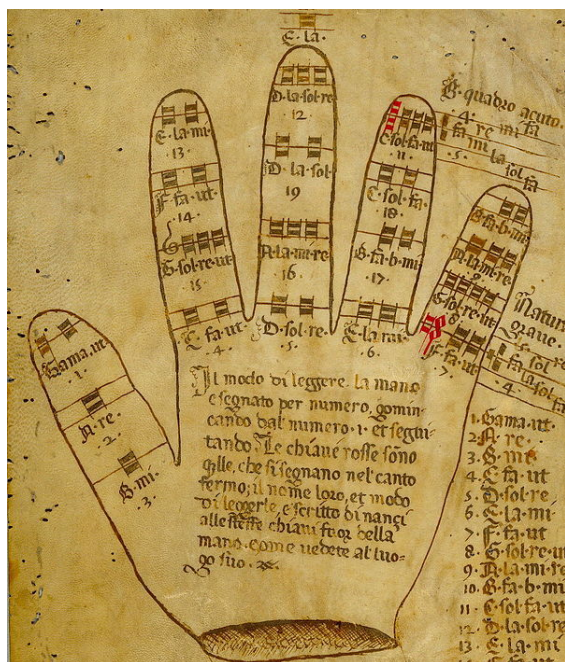 E. la.
D. la. sol. re
12
E. la. mi.
13
D. la. sol
19
C. sol. fa. ut
11
C. sol. fa.
18
F. fa. ut
14
G. sol. re. ut
15
A. la. mi. re
16
B. fa. b. mi
17
C. fa. ut
4
D. sol. re
5
E. la. mi
6
B. fa. b. mi
A. la. mi. re
9
G. sol. re. ut
8
F. fa. ut
7
Gama. ut
1
A. re
2
B. mi
3
quadro acuto.
4. fa
fa re mi
mi la
5. sol fa
Natura
grave.
5. sol
fa re
la sol fa
4.
Il modo di leggere. la mano
e segnato per numero, gomin
cando dal numero. 1. et segui
tando. Le chiaue rosse sono
qlle, che si segnano nel canto
fermo; il nome loro, et modo
di leggerle, e scritto dinanci
alle stesse chiaui fuor della
mano. come uedete al luo
go suo.
1. Gama. ut.
2. A. re.
3. B. mi.
4. C. fa. ut
5. D. sol. re
6. E. la. mi
7. F. fa. ut
8. G. sol. re. ut
9. A. la. mi. re
10. B. fa. b. mi
11. C. sol. fa. ut
12. D. la. sol. re
13. E. la. mi